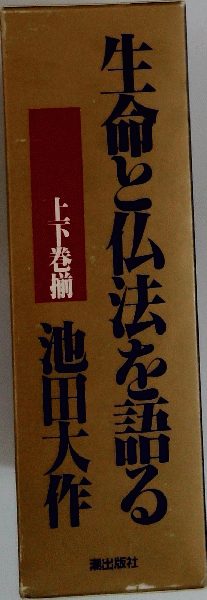 生命と仏法を語る
上下巻揃
池田大作
潮出版社